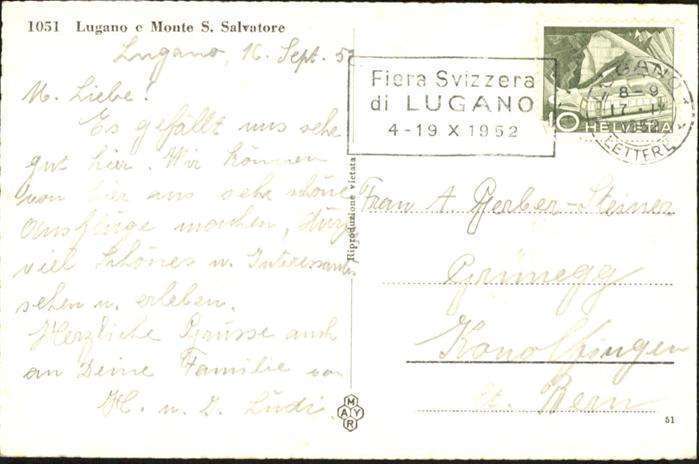 1051 Lugano e Monte S. Salvatore
Lugano, 16. Sept. 52
M. Liebe!
Es gefällt uns sehr
gut hier. Wir können
von hier aus sehr schöne
Ausflüge machen,
viel Schönes u. Interessantes
sehen u. erleben.
Herzliche Grüsse auch
an Deine Familie von
H. u. L. Lüdi.
Fiera Svizzera
di LUGANO
4-19 X 1952
10 HELVETIA
LUGANO 1
8-9
LETTERE
Riproduzione vietata
Frau A. Gerber-Steiner
Grünegg
Konolfingen
Kt. Bern
MAYR
51